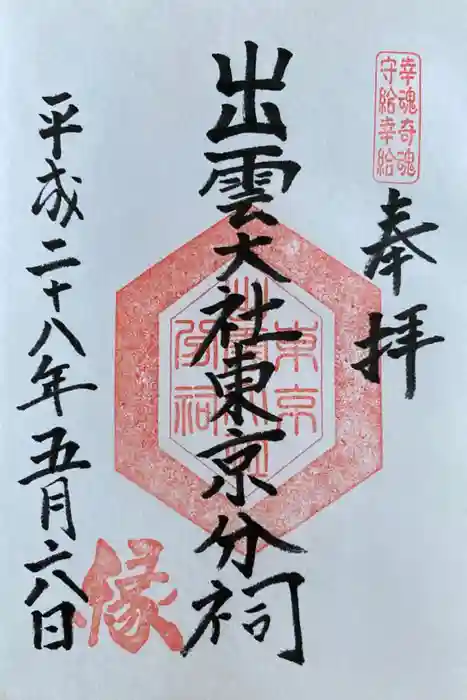 幸魂奇魂
守給幸給
奉拝
出雲大社東京分祠
東京
分祠
平成二十八年五月六日
縁